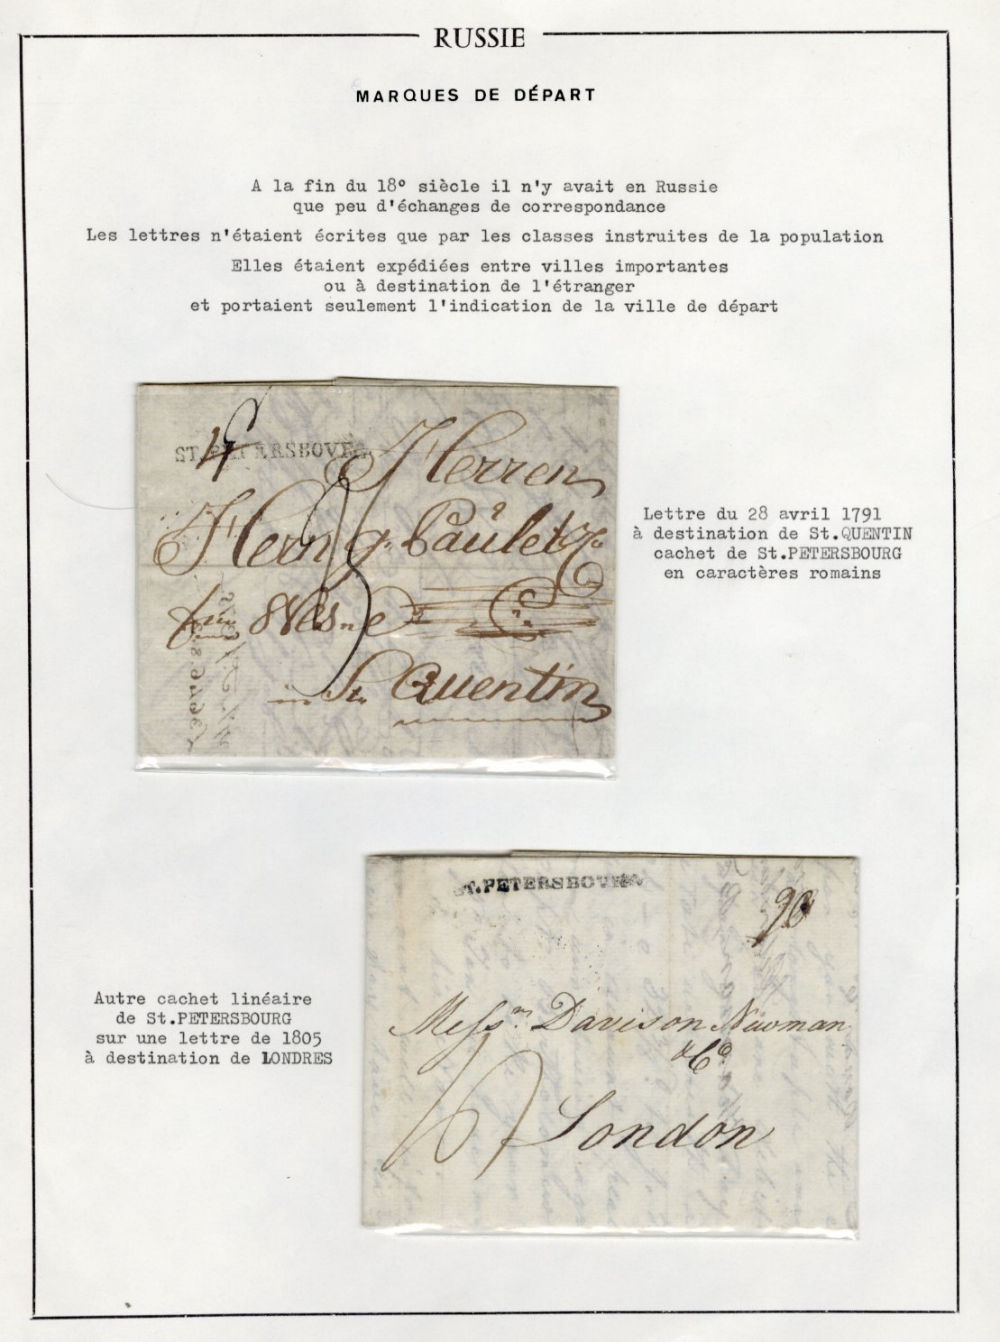 RUSSIE
MARQUES DE DÉPART
A la fin du 18° siècle il n'y avait en Russie
que peu d'échanges de correspondance
Les lettres n'étaient écrites que par les classes instruites de la population
Elles étaient expédiées entre villes importantes
ou à destination de l'étranger
et portaient seulement l'indication de la ville de départ
ST.PETERSBOVRG
Herren
St. Quentin
Lettre du 28 avril 1791
à destination de St.QUENTIN
cachet de St.PETERSBOURG
en caractères romains
ST.PETERSBOVRG
90
Messrs Davison Newman
& Co
London
Autre cachet linéaire
de St.PETERSBOURG
sur une lettre de 1805
à destination de LONDRES